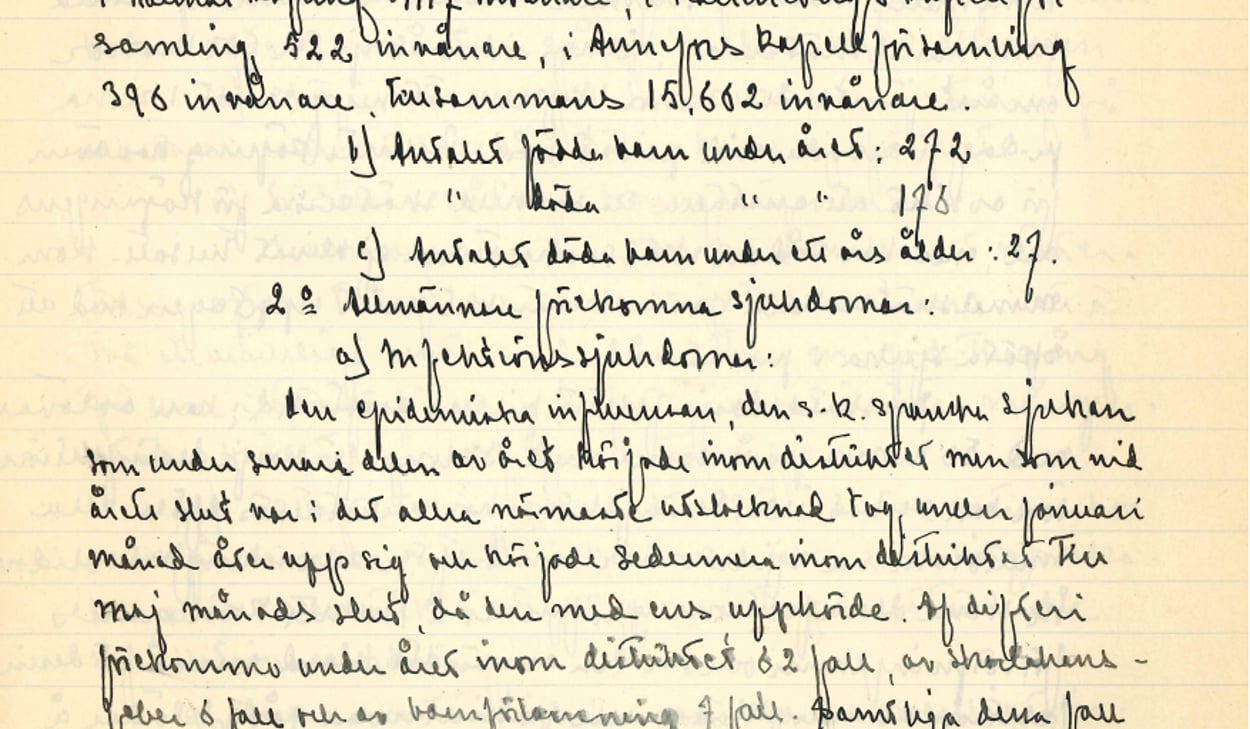 samling 522 invånare, i Annefors kapellförsamling
396 invånare. Tillsammans 15,662 invånare.
b) Antalet födda barn under året: 272
" döda " " 176
c) Antalet döda barn under ett års ålder: 27.
2º Allmännare förekomna sjukdomar:
a) Infektionssjukdomar:
Den epidemiska influensan, den s.k. spanska sjukan
som under senare delen av året härjade inom distriktet men som vid
årets slut var i det allra närmaste utslocknad tog under januari
månad åter upp sig och härjade sedermera inom distriktet till
maj månads slut, då den med ens upphörde. Af difteri
förekommo under året inom distriktet 62 fall, av skarlakans-
feber 6 fall och av barnförlamning 7 fall. Samtliga dessa fall